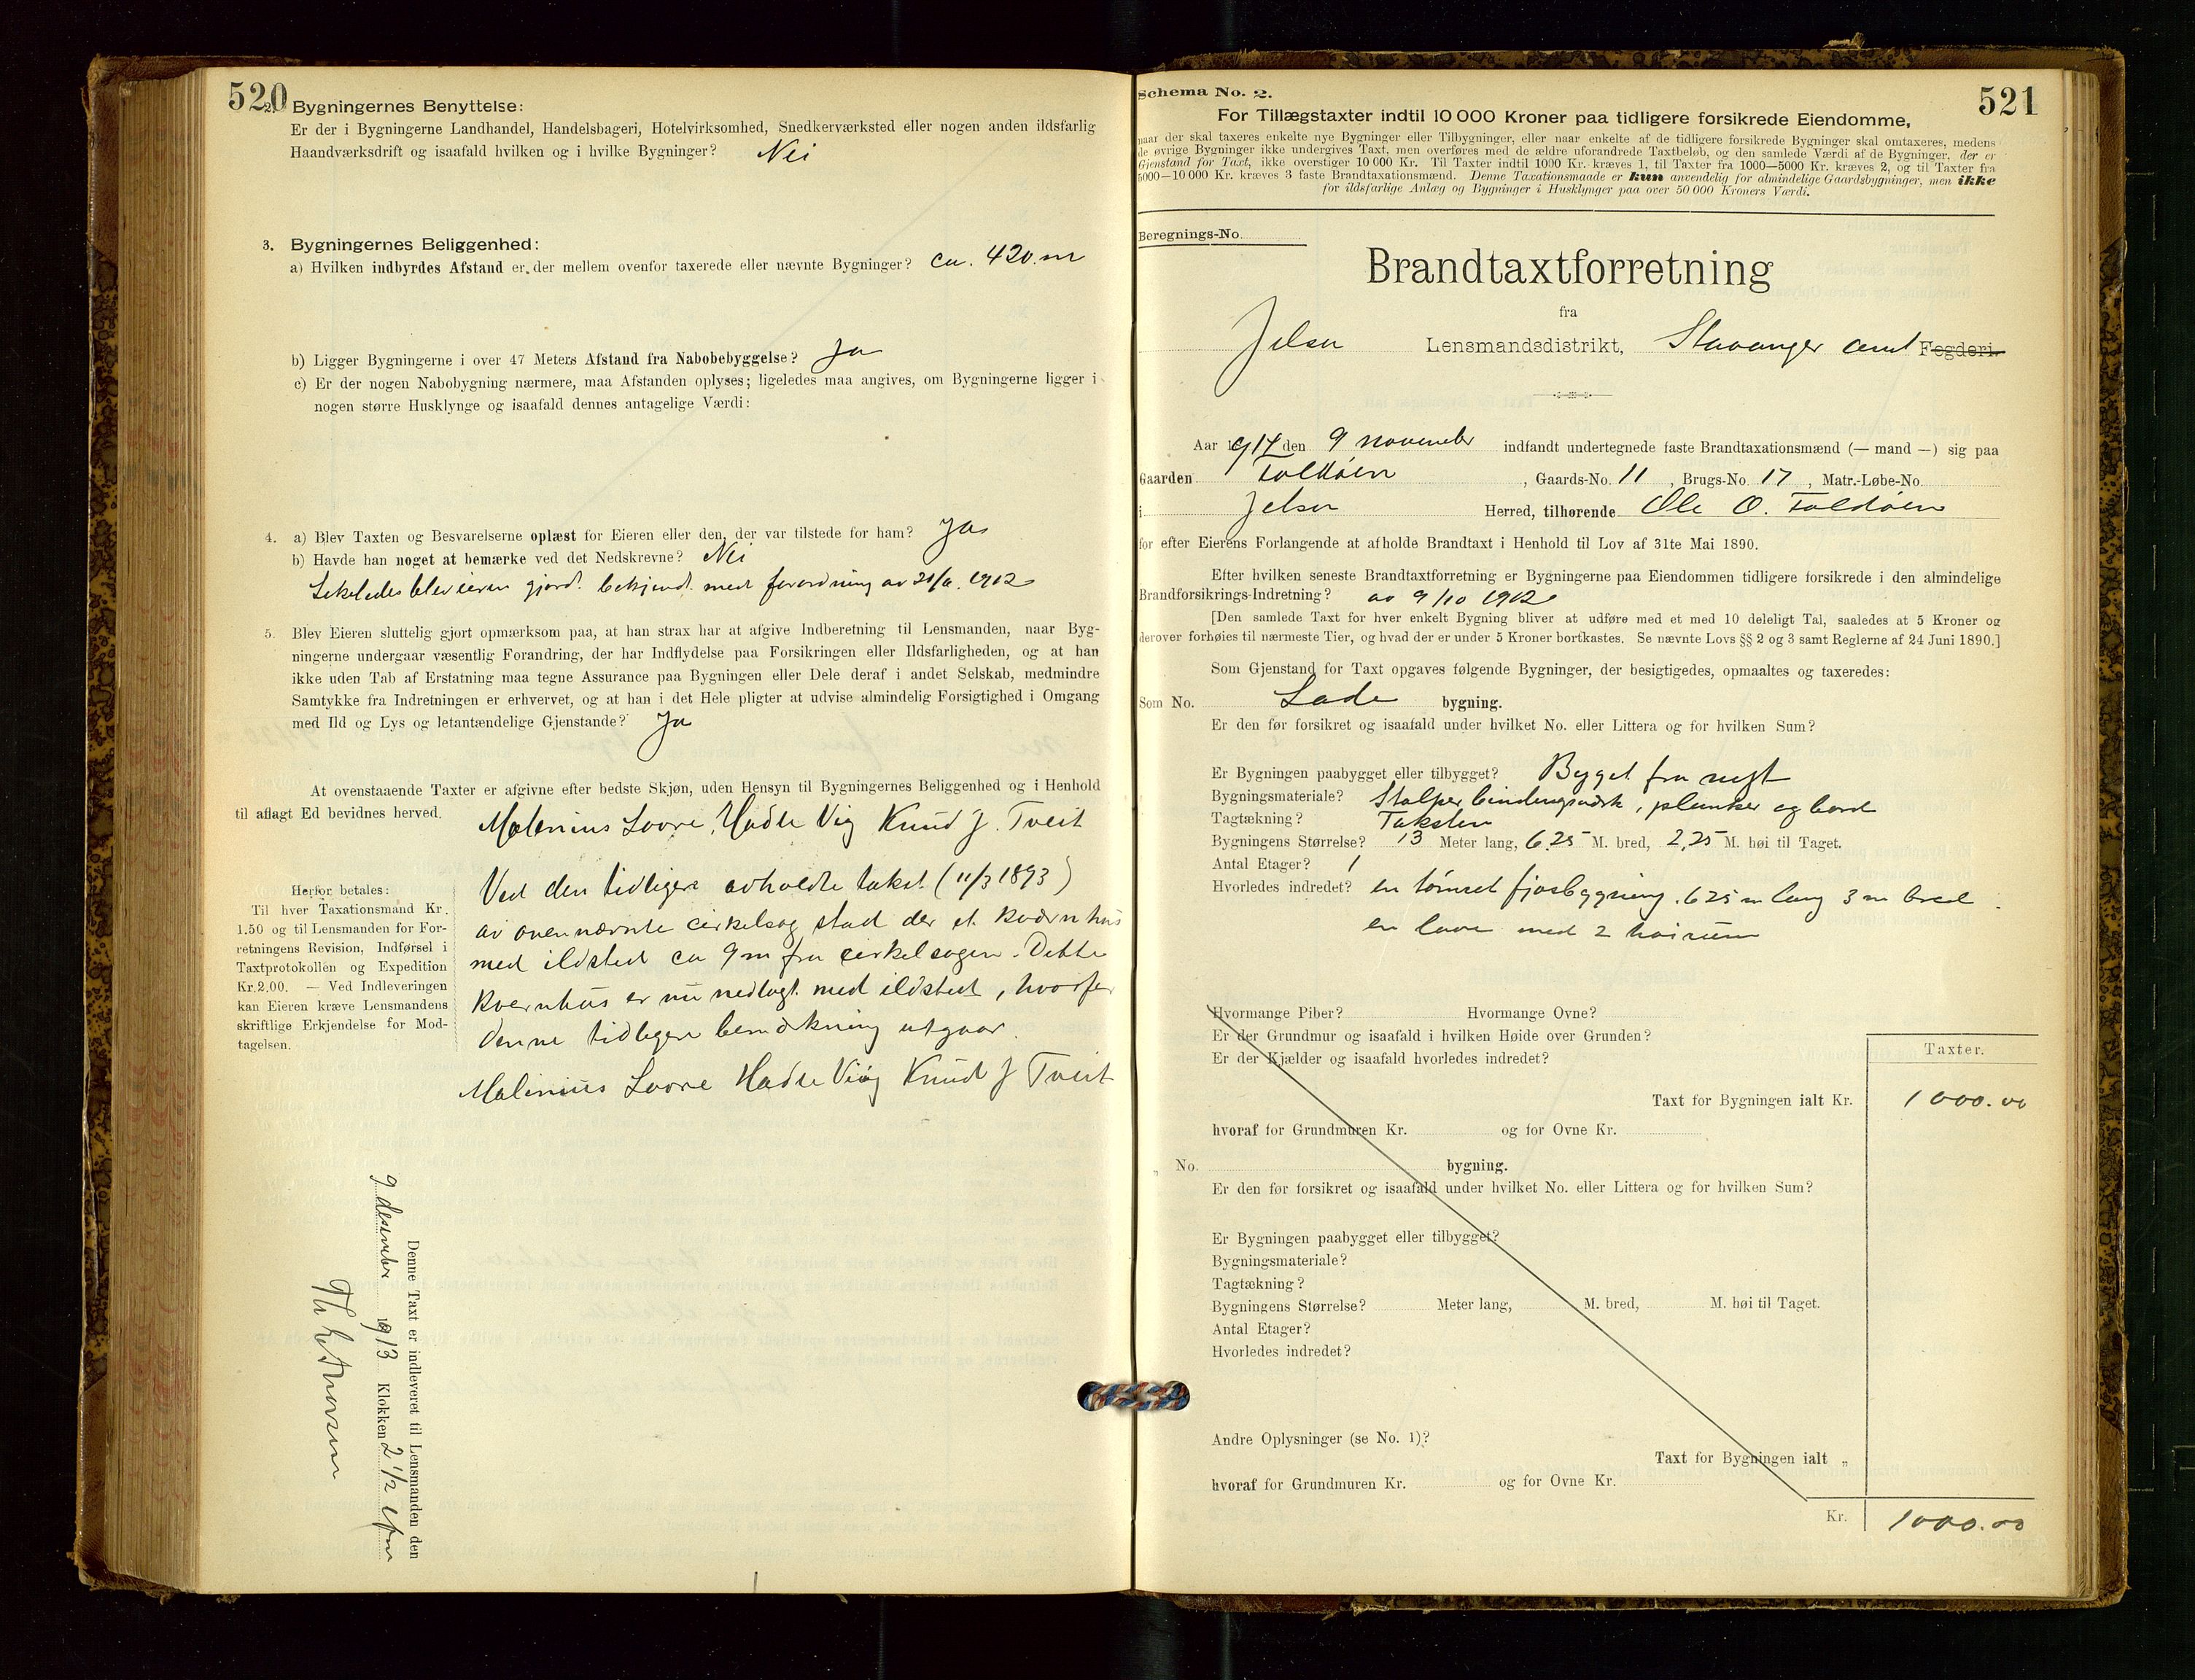 520
2. Bygningernes Benyttelse:
Er der i Bygningerne Landhandel, Handelsbageri, Hotelvirksomhed, Snedkerværksted eller nogen anden ildsfarlig
Haandværksdrift og isaafald hvilken og i hvilke Bygninger? Nei
3. Bygningernes Beliggenhed:
a) Hvilken indbyrdes Afstand er der mellem ovenfor taxerede eller nævnte Bygninger? ca. 420 m
b) Ligger Bygningerne i over 47 Meters Afstand fra Nabobebyggelse? Ja
c) Er der nogen Nabobygning nærmere, maa Afstanden oplyses; ligeledes maa angives, om Bygningerne ligger i
nogen større Husklynge og isaafald dennes antagelige Værdi:
4. a) Blev Taxten og Besvarelserne oplæst for Eieren eller den, der var tilstede for ham? Ja
b) Havde han noget at bemærke ved det Nedskrevne? Nei
Likeledes blev eieren gjort bekjendt med forordning av 1912
5. Blev Eieren sluttelig gjort opmærksom paa, at han strax har at afgive Indberetning til Lensmanden, naar Byg-
ningerne undergaar væsentlig Forandring, der har Indflydelse paa Forsikringen eller Ildsfarligheden, og at han
ikke uden Tab af Erstatning maa tegne Assurance paa Bygningen eller Dele deraf i andet Selskab, medmindre
Samtykke fra Indretningen er erhvervet, og at han i det Hele pligter at udvise almindelig Forsigtighed i Omgang
med Ild og Lys og letantændelige Gjenstande? Ja
At ovenstaaende Taxter er afgivne efter bedste Skjøn, uden Hensyn til Bygningernes Beliggenhed og i Henhold
til aflagt Ed bevidnes herved.
Malenius Lovre Hadle Vig Knud J. Tveit
Herfor betales:
Til hver Taxationsmand Kr.
1.50 og til Lensmanden for For-
retningens Revision, Indførsel i
Taxtprotokollen og Expedition
Kr. 2.00. — Ved Indleveringen
kan Eieren kræve Lensmandens
skriftlige Erkjendelse for Mod-
tagelsen.
Ved den tidligere avholdte takst (11/3 1893)
av ovennævnte cirkelsag stod der et kværnhus
med ildsted ca 9 m fra cirkelsagen. Dette
kvernhus er nu nedlagt med ildsted, hvorfor
denne tidligere bemerkning utgaar.
Malenius Lovre Hadle Vig Knud J Tveit
Denne Taxt er indleveret til Lensmanden den
9 desember 1913 Klokken 2 1/2 efm
521
Schema No. 2.
For Tillægstaxter indtil 10 000 Kroner paa tidligere forsikrede Eiendomme,
naar der skal taxeres enkelte nye Bygninger eller Tilbygninger, eller naar enkelte af de tidligere forsikrede Bygninger skal omtaxeres, medens
de øvrige Bygninger ikke undergives Taxt, men overføres med de ældre uforandrede Taxtbeløb, og den samlede Værdi af de Bygninger, der er
Gjenstand for Taxt, ikke overstiger 10 000 Kr. Til Taxter indtil 1000 Kr. kræves 1, til Taxter fra 1000—5000 Kr. kræves 2, og til Taxter fra
5000—10 000 Kr. kræves 3 faste Brandtaxationsmænd. Denne Taxationsmaade er kun anvendelig for almindelige Gaardsbygninger, men ikke
for ildsfarlige Anlæg og Bygninger i Husklynger paa over 50 000 Kroners Værdi.
Beregnings-No.
Brandtaxtforretning
fra
Jelsa Lensmandsdistrikt, Stavanger amt Fogderi.
Aar 1917 den 9 november indfandt undertegnede faste Brandtaxationsmænd (— mand —) sig paa
Gaarden Foldøen, Gaards-No. 11, Brugs-No. 17, Matr.-Løbe-No.
i Jelsa Herred, tilhørende Ole O. Foldøen
for efter Eierens Forlangende at afholde Brandtaxt i Henhold til Lov af 31te Mai 1890.
Efter hvilken seneste Brandtaxtforretning er Bygningerne paa Eiendommen tidligere forsikrede i den almindelige
Brandforsikrings-Indretning? av 9/10 1902
[Den samlede Taxt for hver enkelt Bygning bliver at udføre med et med 10 deleligt Tal, saaledes at 5 Kroner og
derover forhøies til nærmeste Tier, og hvad der er under 5 Kroner bortkastes. Se nævnte Lovs §§ 2 og 3 samt Reglerne af 24 Juni 1890.]
Som Gjenstand for Taxt opgaves følgende Bygninger, der besigtigedes, opmaaltes og taxeredes:
Som No. Lade bygning.
Er den før forsikret og isaafald under hvilket No. eller Littera og for hvilken Sum?
Er Bygningen paabygget eller tilbygget? Bygget fra nyt
Bygningsmateriale? Stolper bindingsverk, planker og bord
Tagtækning? Taksten
Bygningens Størrelse? 13 Meter lang, 6,25 M. bred, 2,25 M. høi til Taget.
Antal Etager? 1
Hvorledes indredet? en tømret fjøsbygning. 625 m lang 3 m bred.
en lave med 2 høirum
Hvormange Piber? Hvormange Ovne?
Er der Grundmur og isaafald i hvilken Høide over Grunden?
Er der Kjælder og isaafald hvorledes indredet?
Taxter.
Taxt for Bygningen ialt Kr. 1000.00
hvoraf for Grundmuren Kr. og for Ovne Kr.
" No. bygning.
Er den før forsikret og isaafald under hvilket No. eller Littera og for hvilken Sum?
Er Bygningen paabygget eller tilbygget?
Bygningsmateriale?
Tagtækning?
Bygningens Størrelse? Meter lang, M. bred, M. høi til Taget.
Antal Etager?
Hvorledes indredet?
Andre Oplysninger (se No. 1)?
Taxt for Bygningen ialt "
hvoraf for Grundmuren Kr. og for Ovne Kr.
Kr. 1000.00